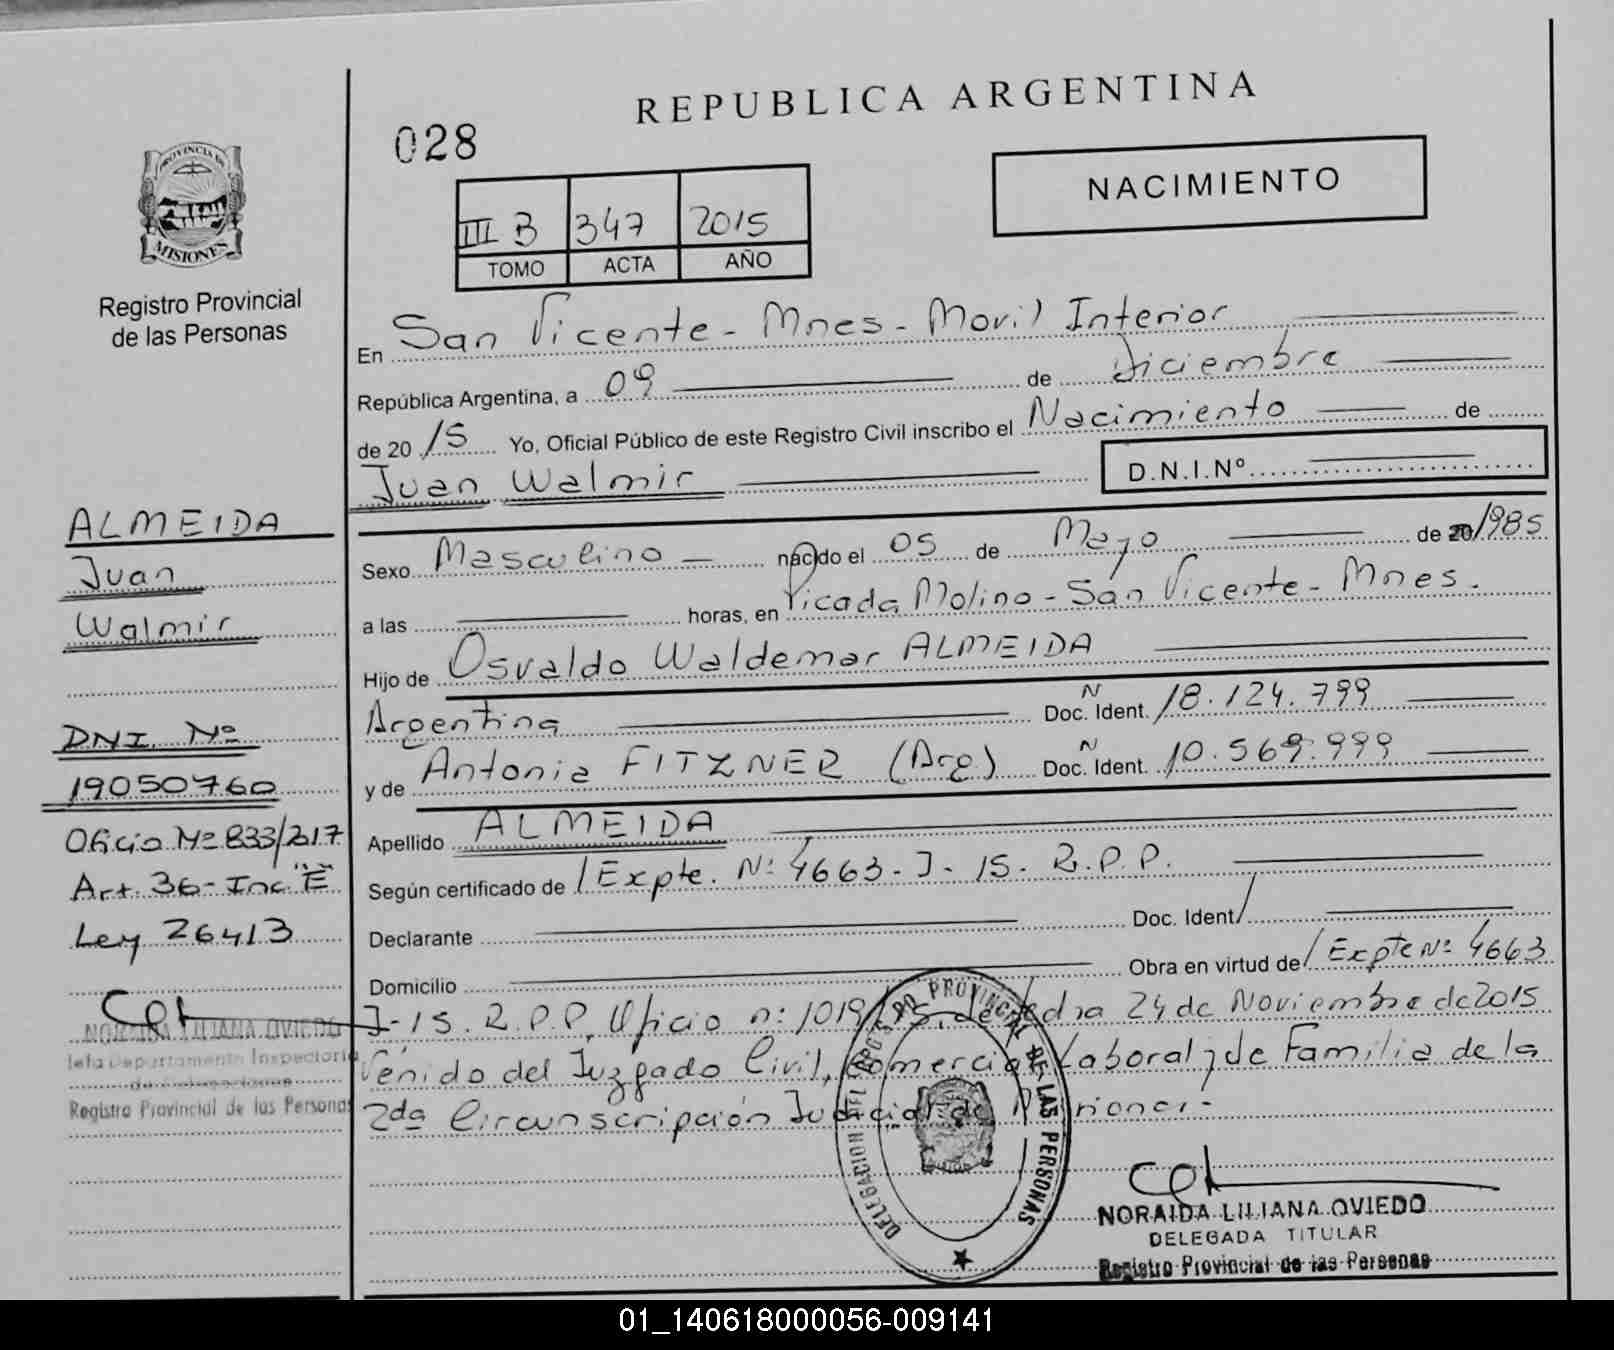 REPUBLICA ARGENTINA
028
NACIMIENTO
III B 347 2015
TOMO ACTA AÑO
PROVINCIA DE
MISIONES
Registro Provincial
de las Personas
En San Vicente - Mnes - Movil Interior
República Argentina, a 09 de Diciembre
de 2015 Yo, Oficial Público de este Registro Civil inscribo el Nacimiento de
Juan Walmir D.N.I.Nº
Sexo Masculino nacido el 05 de Mayo de 20/985
a las horas, en Picada Molino - San Vicente - Mnes.
Hijo de Osvaldo Waldemar ALMEIDA
Argentina Doc. Ident. N 18.124.799
y de Antonia FITZNER (Arg) Doc. Ident. N 10.569.999
Apellido ALMEIDA
Según certificado de / Expte. Nº 4663 - J - 15. R.P.P.
Declarante Doc. Ident /
Domicilio Obra en virtud de / Expte Nº 4663
J-15. R.P.P. Oficio nº 1019/15, de fecha 24 de Noviembre de 2015
Venido del Juzgado Civil, Comercial Laboral y de Familia de la
2da Circunscripción Judicial de Misiones-
DELEGACION DEL REGISTRO PROVINCIAL DE LAS PERSONAS
NORAIDA LILIANA OVIEDO
DELEGADA TITULAR
Registro Provincial de las Personas
ALMEIDA
Juan
Walmir
DNI. Nº
19050760
Oficio Nº 833/217
Art. 36- Inc. "E"
Ley 26413
NORAIDA LILIANA OVIEDO
Jefa Departamento Inspectoria
de Delegaciones
Registro Provincial de las Personas
01_140618000056-009141